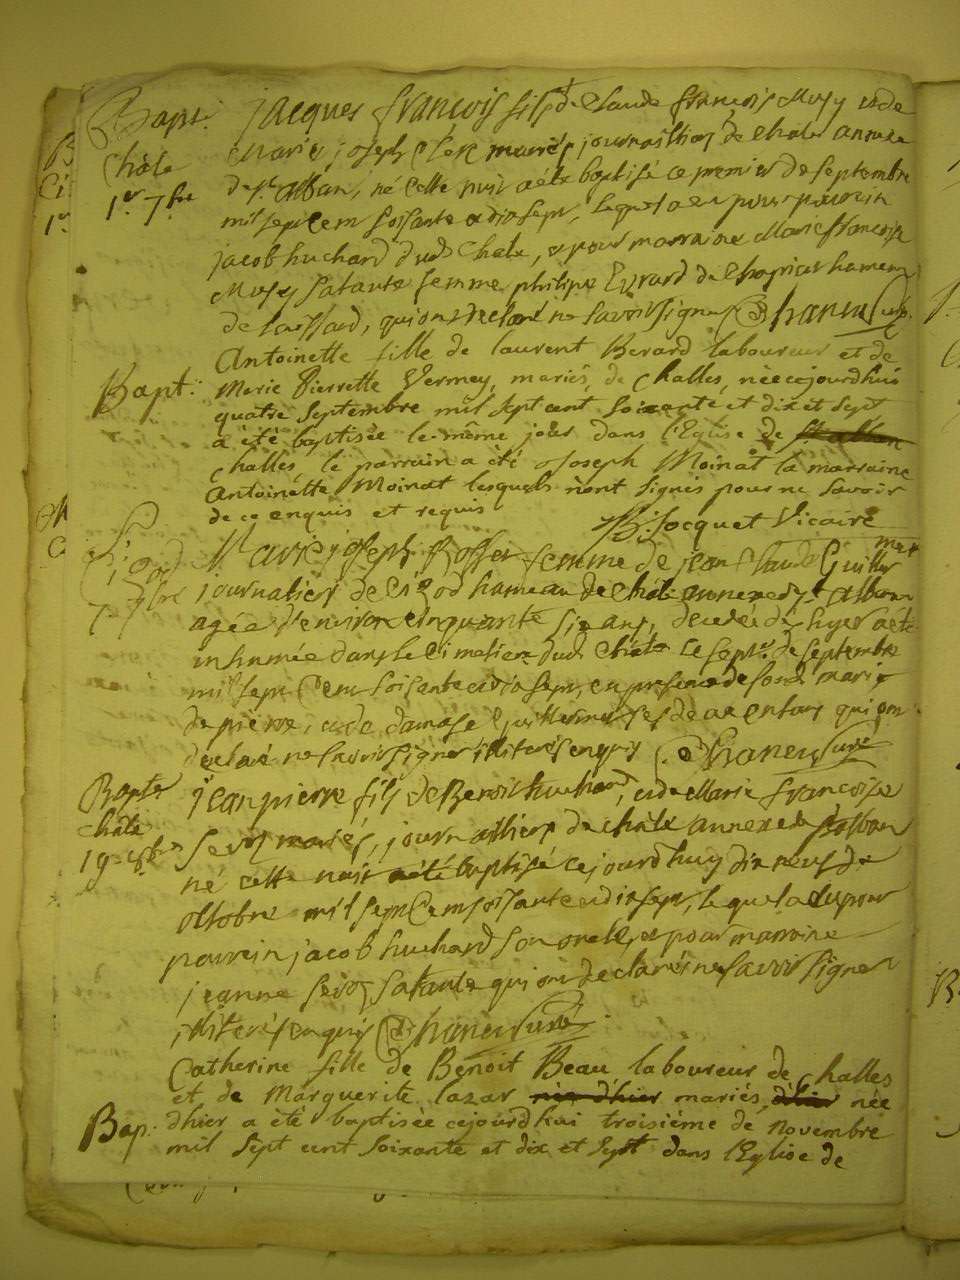 Bapt.
Châle
1er 7bre
jacques françois fils de Claude françois Musy et de
Marie joseph Clerc mariés journalliers de Châle annexe
de st alban, né cette nuit a été baptisé ce premier de septembre
mil sept cent soisante et dix sept, lequel a eu pour parrain
jacob huchard dud. Châle, et pour marraine Marie françoise
Musy sa tante femme philipe Evrard de hameau
de qui ont declaré ne savoir signer Curé.
Bapt:
Antoinette fille de laurent Berard laboureur et de
Marie Pierrette Vermey, mariés, de Challes, née cejourdhui
quatre septembre mil sept cent soixante et dix et sept
a été baptisée le même jour dans l'Eglise de st alban
Challes, le parrain a été Joseph Moinat la marraine
Antoinette Moinat lesquels n'ont signés pour ne savoir
de ce enquis et requis
B. Jocquet Vicaire
7 7bre
Marie joseph femme de jean Claude Guiller
met
journalier de hameau de Châle annexe de st alban
agée d'environ cinquante six ans, decedée d'hyer a été
inhumée dans le cimetiere dud. Châle le sept. de septembre
mil sept cent soisante et dix sept, en presence de son mari
de pierre, et de damase Guillermet ses parents qui ont
declaré ne savoir signer enquis Curé
Bapte
Châle
19 8bre
jean pierre fils de Benoit huchard, et de Marie françoise
Sevoz mariés, journalliers de châle annexe de st alban
né cette nuit a été baptisé cejourdhuy dix neuf de
ottobre mil sept cent soisante et dix sept, lequel a eu pour
parrein jacob huchard son oncle, et pour marraine
jeanne Sevoz sa tante qui ont declarés ne savoir signer
enquis Curé.
Bap.
Catherine fille de Benoit Beau laboureur de Challes
et de Marguerite lazar née d'hier mariés, d'hier née
dhier a été baptisée cejourdhui troisième de novembre
mil sept cent soixante et dix et sept dans l'Eglise de